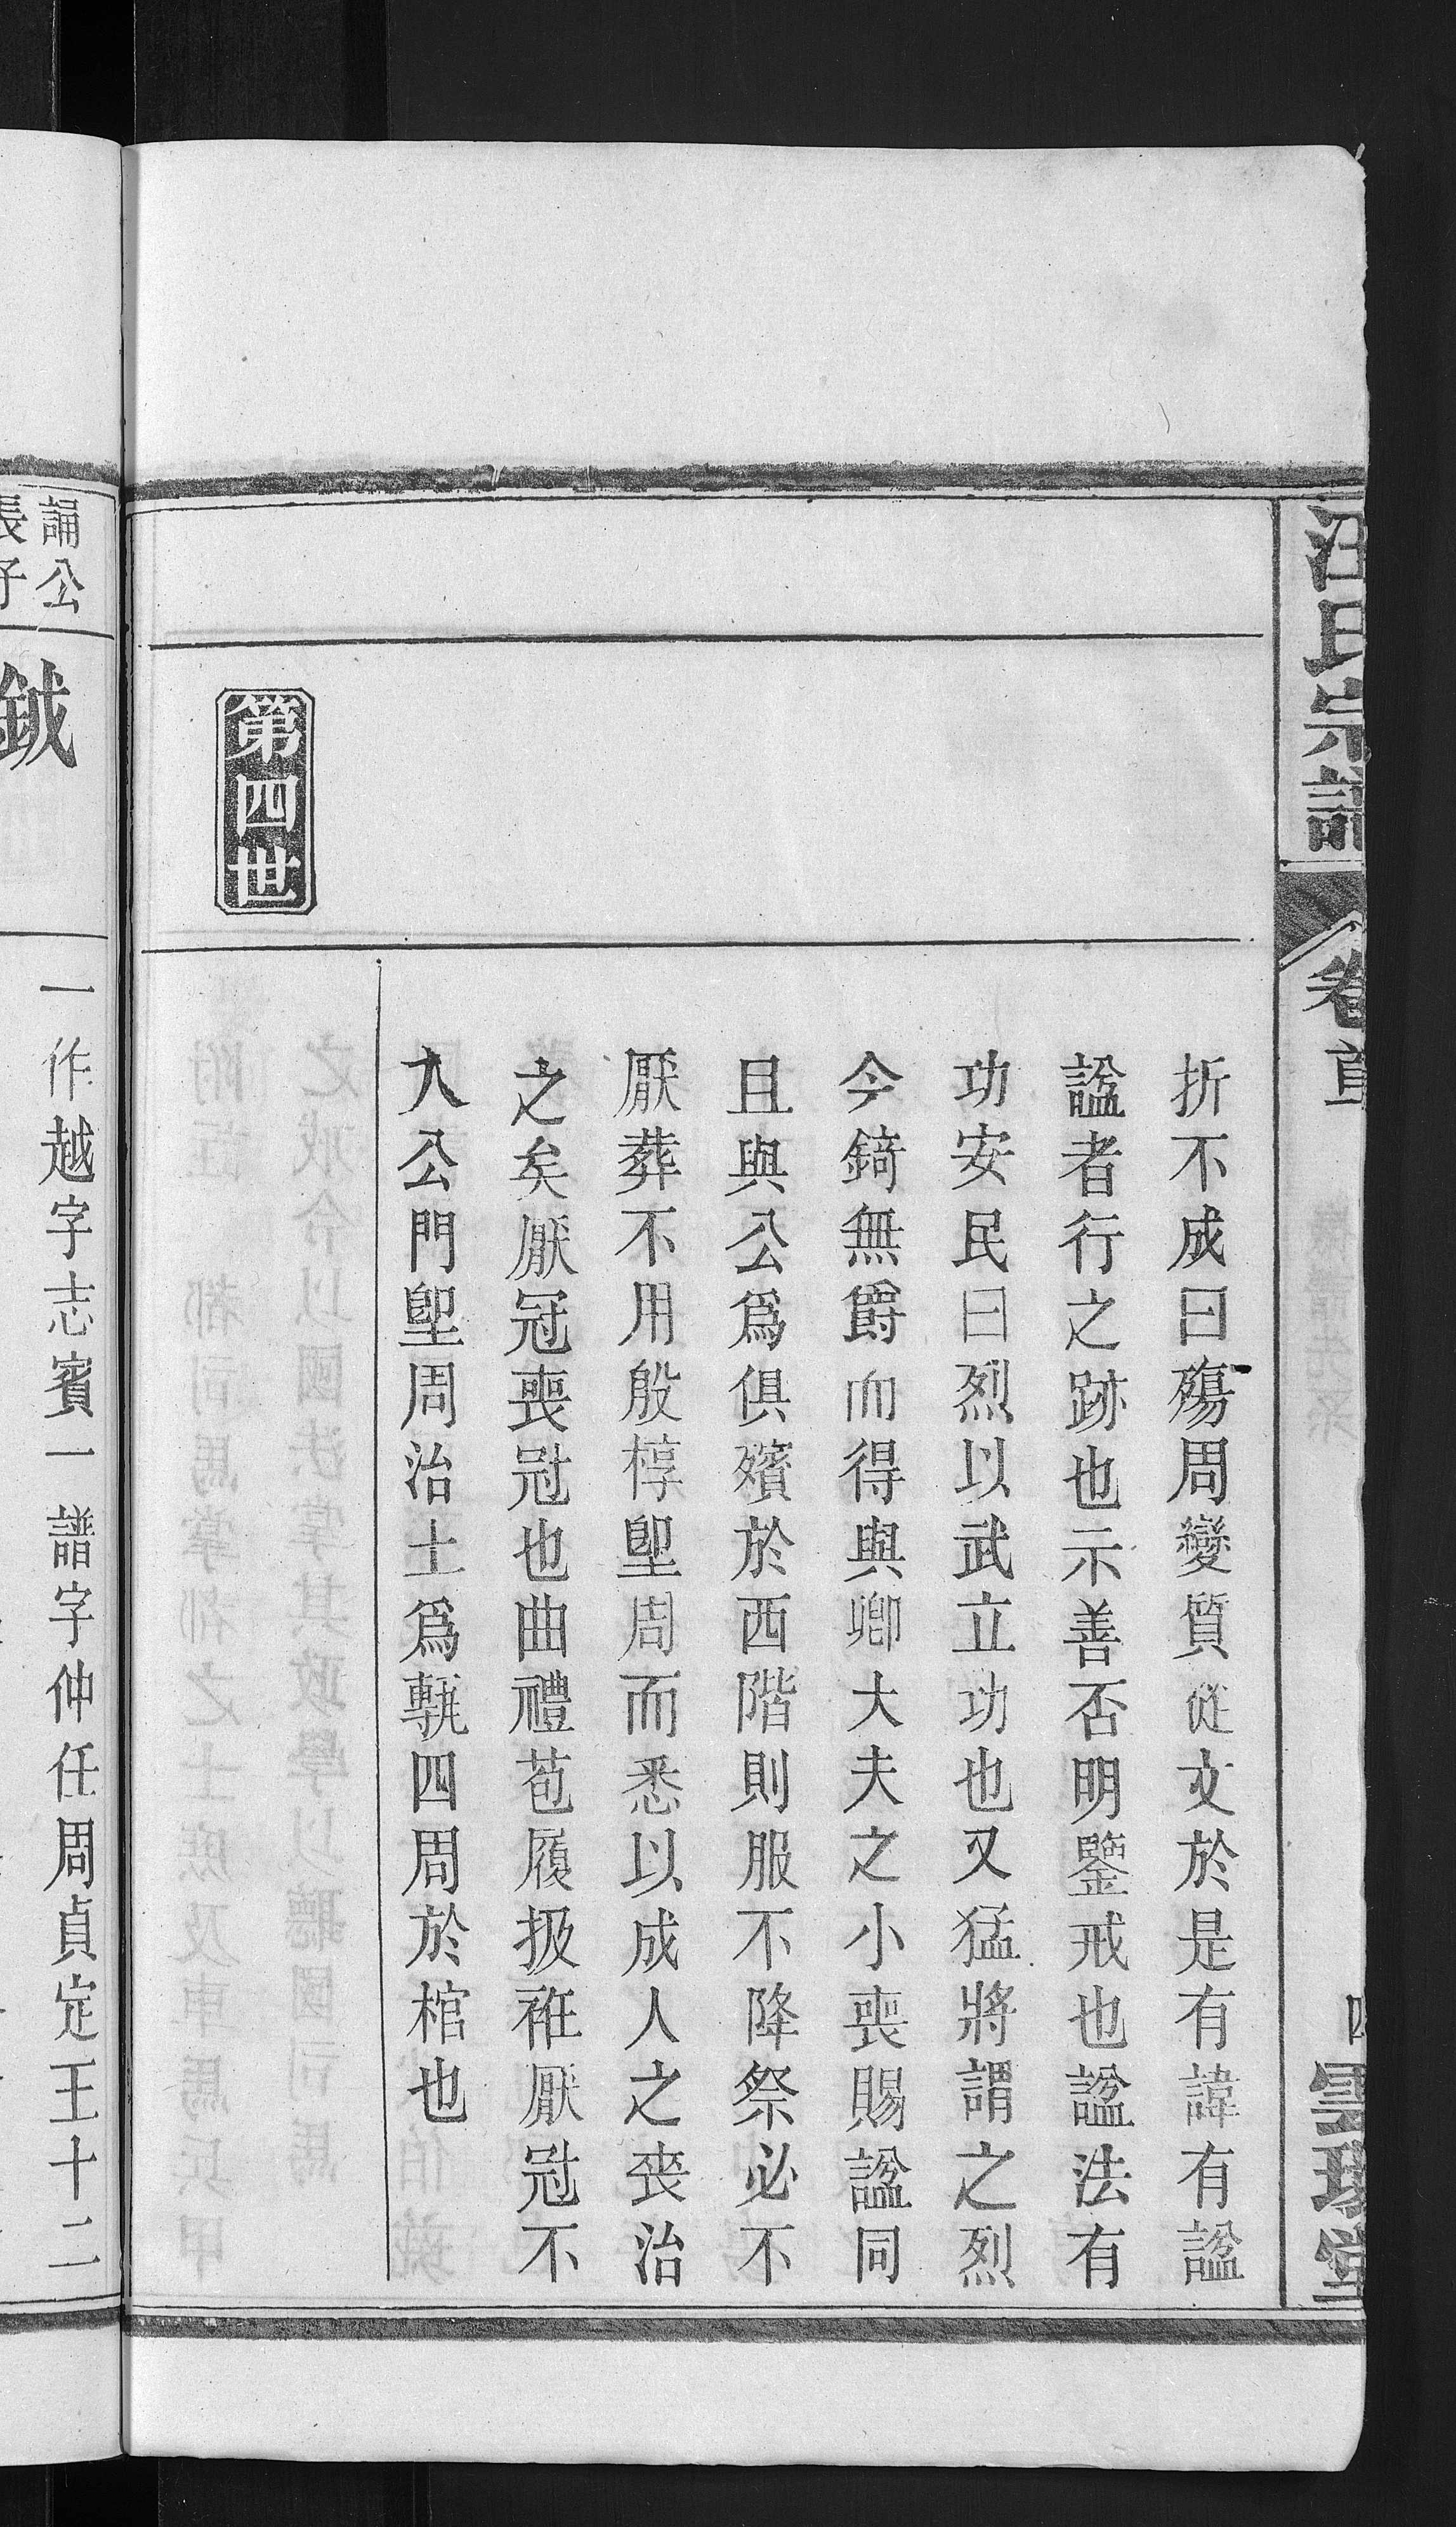 汪氏宗譜
卷首
四
雲環堂
折不成曰殤周變質從文於是有諱有諡
諡者行之跡也示善否明鑒戒也諡法有
功安民曰烈以武立功也又猛將謂之烈
今錡無爵而得與卿大夫之小喪賜諡同
且與公爲俱殯於西階則服不降祭必不
厭葬不用殷椁堲周而悉以成人之喪治
之矣厭冠喪冠也曲禮苞屨扱衽厭冠不
入公門堲周治土爲甎四周於棺也
第四世
誦公
長子
鉞
一作越字志賓一譜字仲任周貞定王十二